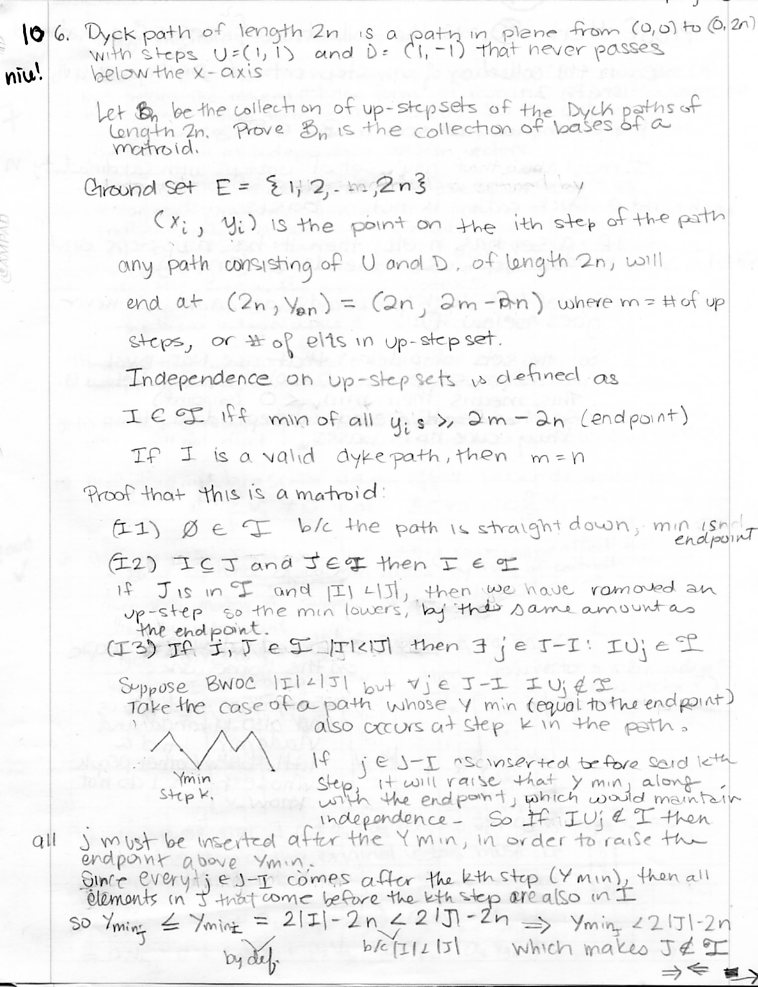 10 6. Dyck path of length 2n is a path in plane from (0,0) to (0,2n)
with steps U=(1,1) and D=(1,-1) that never passes
niu! below the x-axis
Let Bn be the collection of up-step sets of the Dyck paths of
length 2n. Prove Bn is the collection of bases of a
matroid.
Ground set E = {1,2,...,2n}
by
(xi, yi) is the point on the ith step of the path
any path consisting of U and D, of length 2n, will
end at (2n, y2n) = (2n, 2m-2n) where m = # of up
steps, or # of elts in up-step set.
Independence on up-step sets is defined as
I ∈ I iff min of all yi s ≥ 2m-2n (endpoint)
If I is a valid dyke path, then m=n
Proof that this is a matroid:
(I1) ∅ ∈ I b/c the path is straight down, min is
endpoint
(I2) I ⊆ J and J ∈ I then I ∈ I
if J is in I and |I| < |J|, then we have removed an
up-step so the min lowers, by the same amount as
the endpoint.
(I3) If I, J ∈ I |I|<|J| then ∃ j ∈ J-I : I∪j ∈ I
Suppose BWOC |I|<|J| but ∀j ∈ J-I I∪j ∉ I
Take the case of a path whose y min (equal to the endpoint)
also occurs at step k in the path.
If j ∈ J-I is inserted before said kth
Ymin
step, it will raise that y min, along
step k
with the endpoint, which would maintain
independence - So If I∪j ∉ I then
all j must be inserted after the Ymin, in order to raise the
endpoint above Ymin.
Since every j ∈ J-I comes after the kth step (Ymin), then all
elements in J that come before the kth step are also in I
so YminJ ≤ YminI = 2|I|-2n < 2|J|-2n ⇒ YminJ < 2|J|-2n
by def. b/c |I|<|J| which makes J ∉ I
⇒⇐